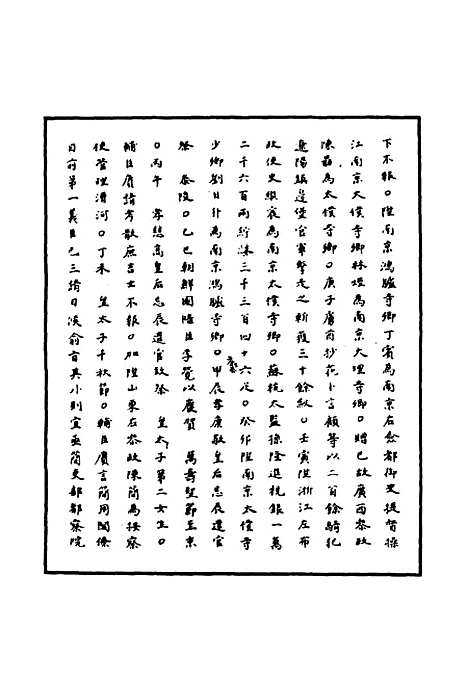 下不報○陞南京鴻臚寺卿丁賓為南京右僉都御史提督操
江南京大僕寺卿林烴為南京大理寺卿○贈已故廣西參政
陳嘉為太僕寺卿○庚子虜酋抄花卜言顧等以二百餘騎犯
遼陽鎮邊堡官軍擊走之斬獲三十餘級○壬寅陞浙江左布
政使史繼宸為南京太僕寺卿○蘇杭太監孫隆進稅銀一萬
二千六百兩紵絲三千三百四十六疋○癸卯陞南京太僕寺
少卿劉日升為南京鴻臚寺卿○甲辰孝康敬皇后忌辰遣官
祭 泰陵○乙巳朝鮮國陪臣李覺以慶賀 萬壽聖節至京
○丙午 孝慈高皇后忌辰遣官致祭 皇太子第二女生○
輔臣賡請考散庶吉士不報○加陞山東右參政陳簡為按察
使管理漕河○丁未 皇太子千秋節○輔臣賡言簡用閣僚
目前第一義臣已三揭日候俞音其小則宜亟簡吏部都察院